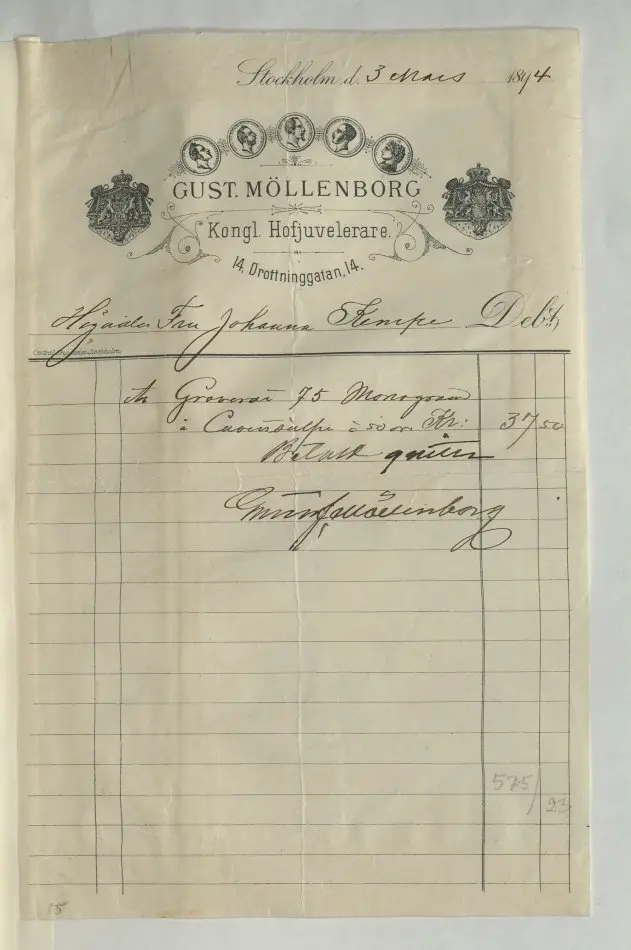 Stockholm d. 3 Mars 1894
GUST. MÖLLENBORG
Kongl. Hofjuvelerare.
14, Drottninggatan, 14.
Fru Johanna Kempe Debt,
Centraltryckeriet Stockholm
Graverat 75 Monogram
à 50 öre Kr: 37 50
Betalt qvitteras
Gustaf Möllenborg
575/
23
15